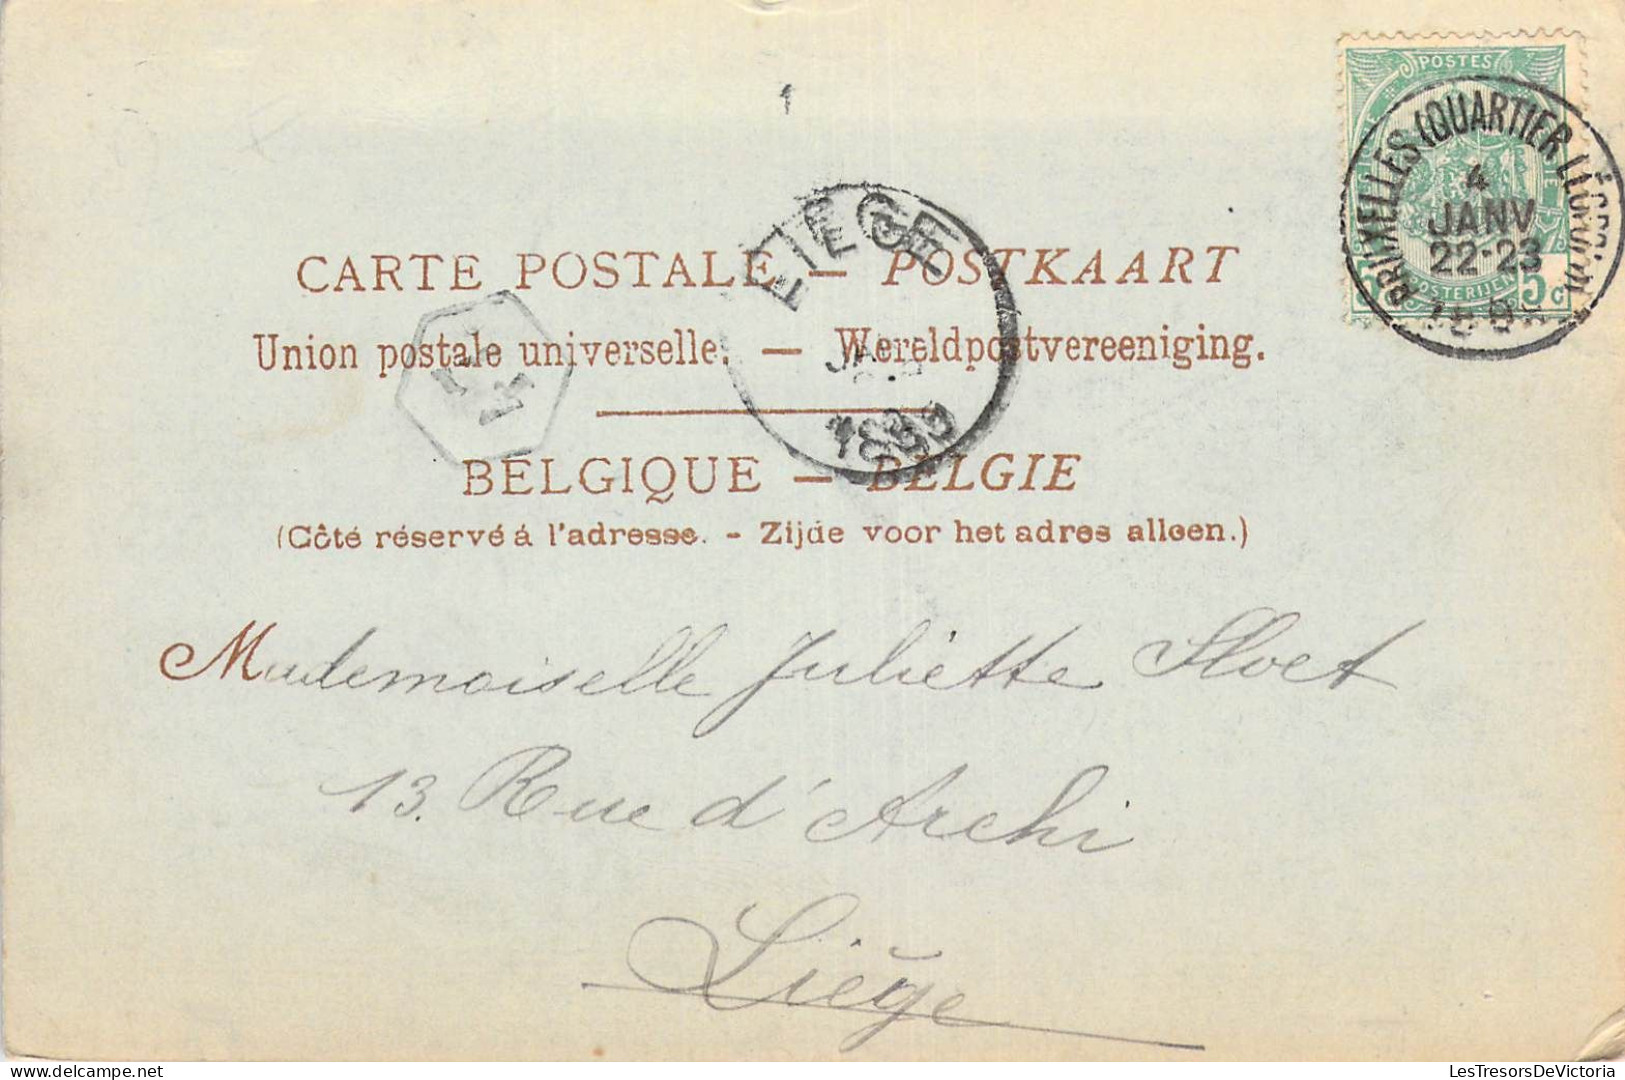 1
POSTES
BRUXELLES (QUARTIER LÉOPOLD)
4
JANV
22-23
POSTERIJEN
5c
LIEGE
1899
CARTE POSTALE — POSTKAART
Union postale universelle. — Wereldpostvereeniging.
BELGIQUE — BELGIE
(Côté réservé á l'adresse. - Zijde voor het adres alleen.)
Mademoiselle Juliette Sloet
13. Rue d'Archi
Liége
LesTresorsDeVictoria.com
LesTresorsDeVictoria